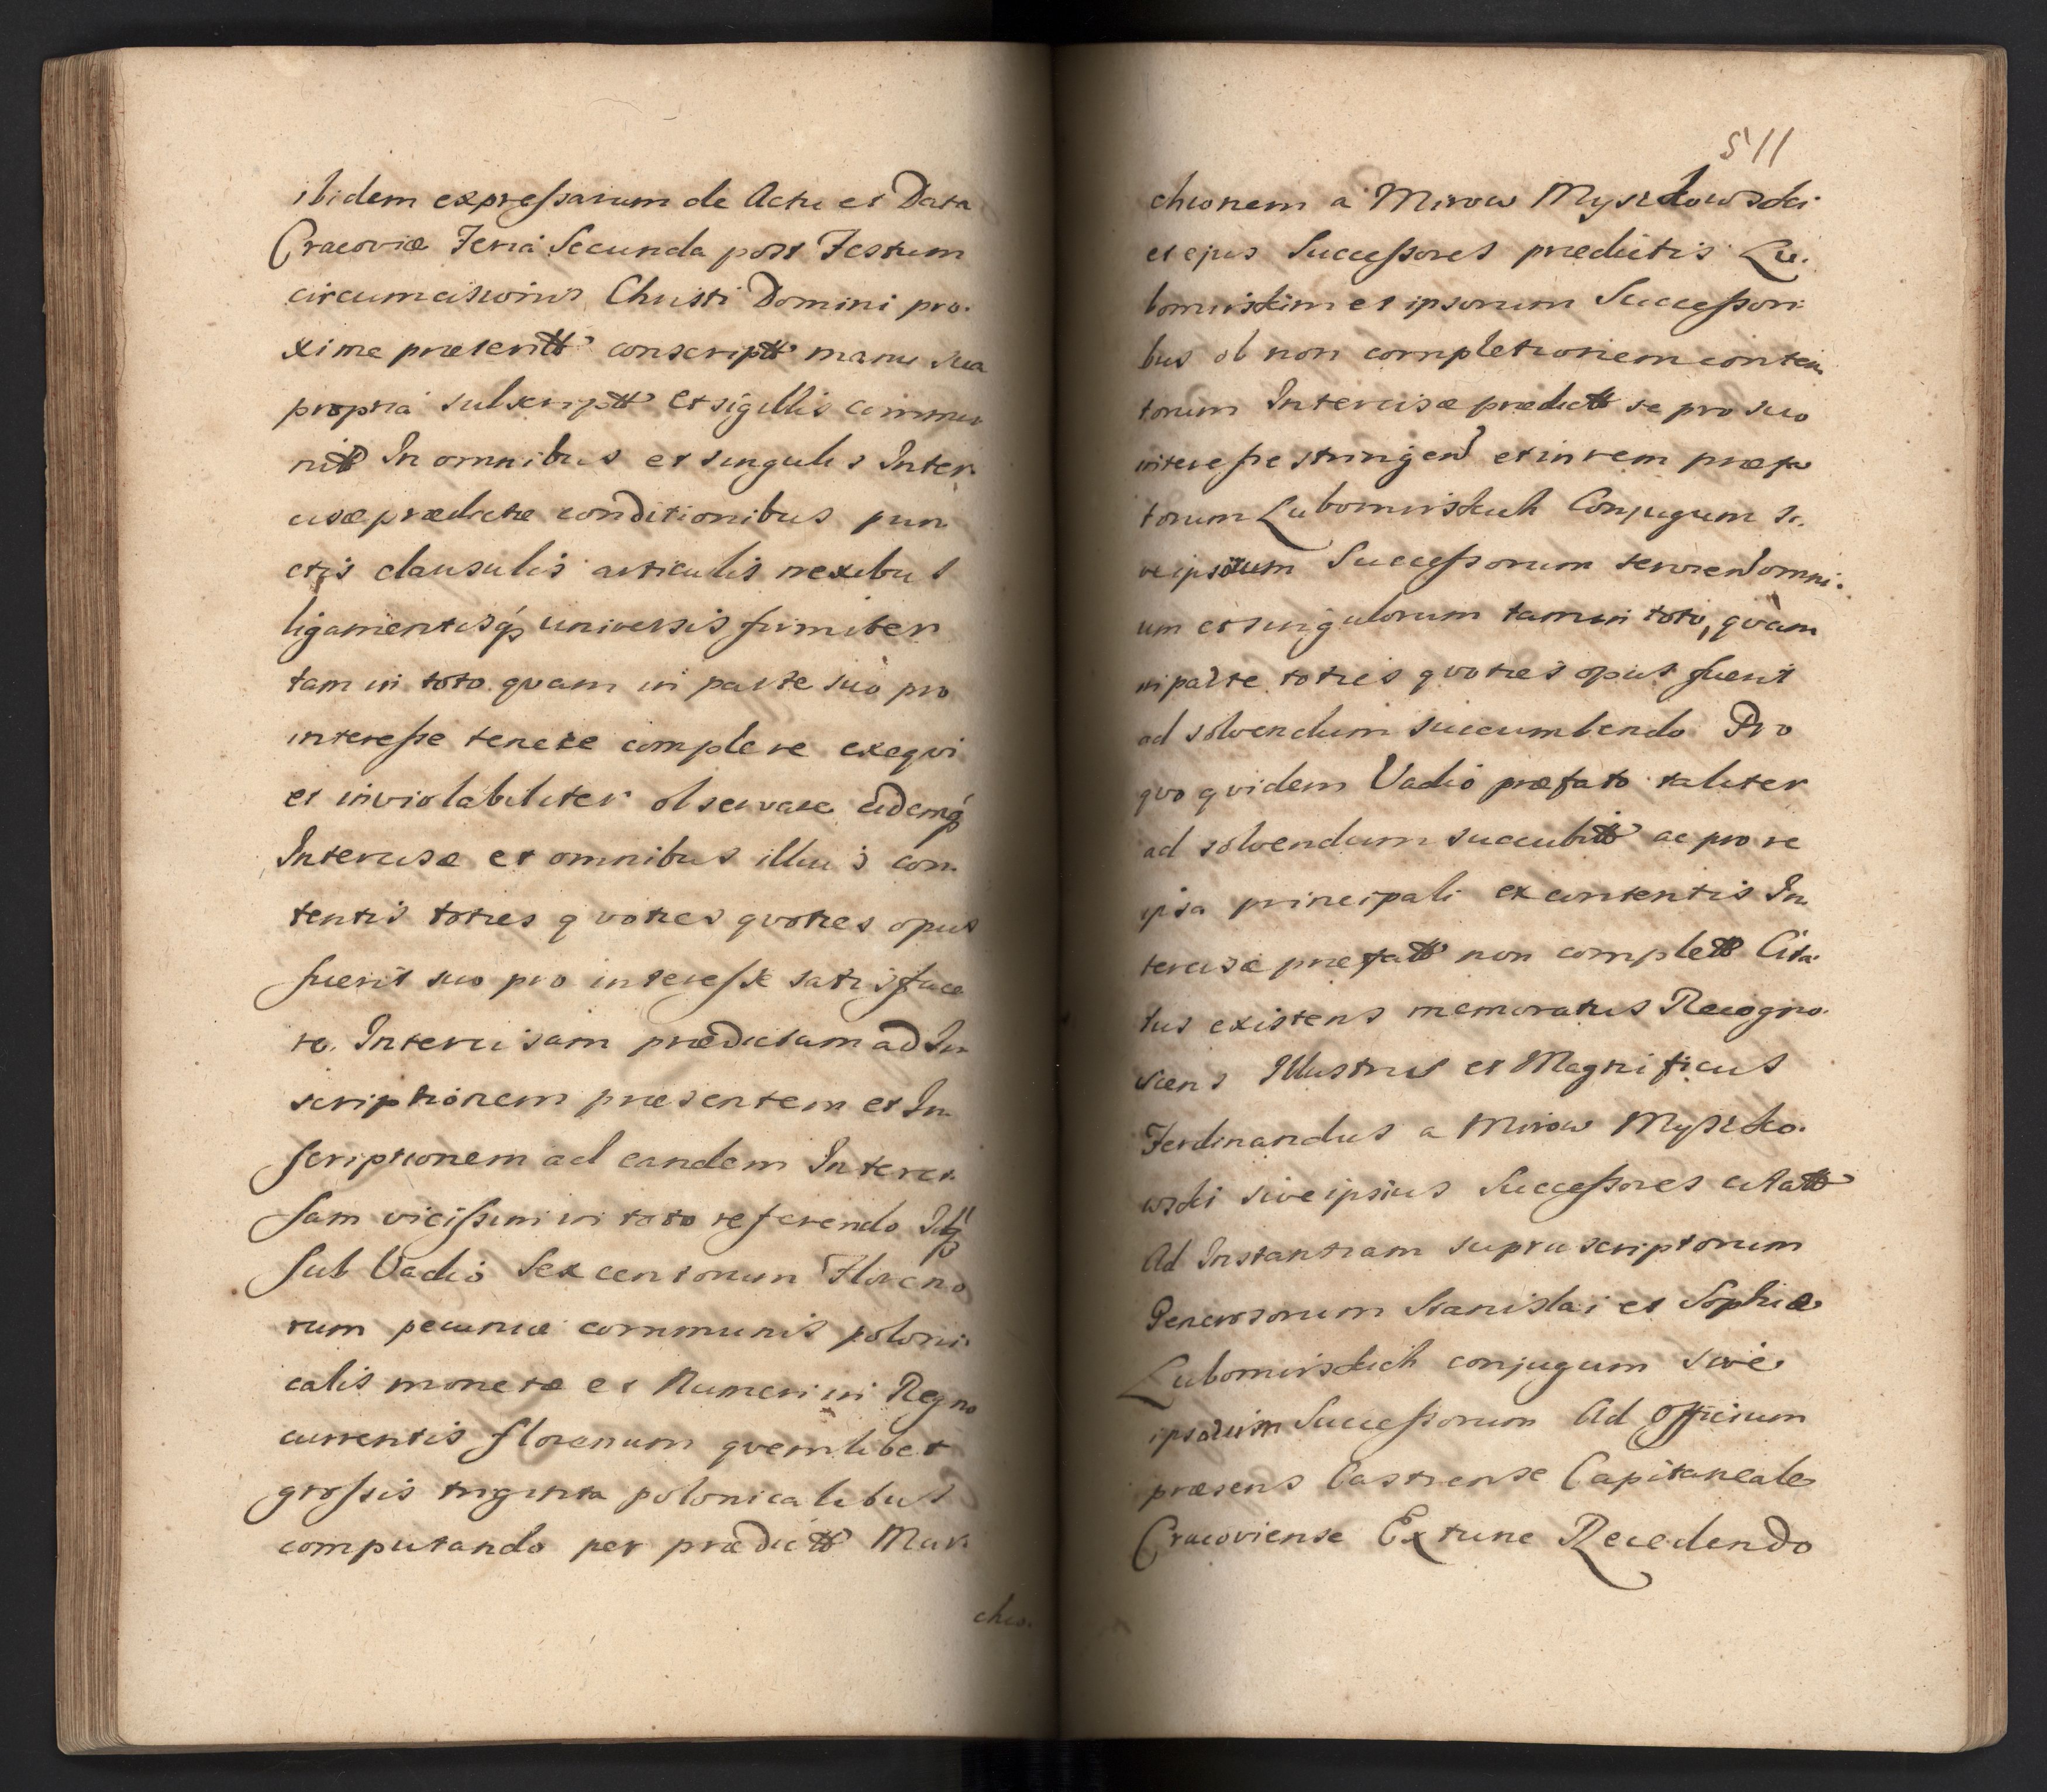 ibidem expressarum de Actu et Data
Cracoviæ Feria Secunda post Festum
circumcisionis Christi Domini pro.
xime præteritt conscriptt manu sua
propria subscriptt et sigillis commu
nitt In omnibus et singulis Inter
cisæ prædictæ conditionibus pun
ctis clausulis articulis nexibus
ligamentisq; universis firmiter
tam in toto quam in parte suo pro
interesse tenere complere exequi
et inviolabiliter observare eidemq;
Intercisæ et omnibus illius con
tentis toties quoties quoties opus
fuerit suo pro interesse satisface
re. Intercisam prædictam ad In
scriptionem præsentem et In
scriptionem ad eandem Interci
sam vicissim in toto referendo Idq;
sub Vadio Sexcentorum Floreno
rum pecuniæ communis poloni.
calis monetæ et Numeri in Regno
currentis florenum quemlibet
grossis triginta polonicalibus
computando per prædictt Mar.
chio.
511
chionem a Mirow Myszkowski
et ejus Successores prædictis Lu.
bomirskim et ipsorum Successori
bus ob non completionem conten
torum Intercisæ prædictt se pro suo
interesse stringend et in rem præfa
torum Lubomirskich Conjugum si.
ve ipsorum Successorum serviend omni.
um et singulorum tam in toto, quam
in parte toties quoties opus fuerit
ad solvendum succumbendo Pro
quo quidem Vadio præfato taliter
ad solvendum succubitt ac pro re
ipsa principali ex contentis In
tercisæ præfatt non complett Cita.
tus existens memoratus Recogno.
scens Illustris et Magnificus
Ferdinandus a Mirow Myszko.
wski sive ipsius Successores citatt
Ad Instantiam suprascriptorum
Generosorum Stanislai et Sophiæ
Lubomirskich conjugum sive
ipsorum Successorum Ad Officium
præsens Castrense Capitaneale
Cracoviense Ex tunc Recedendo